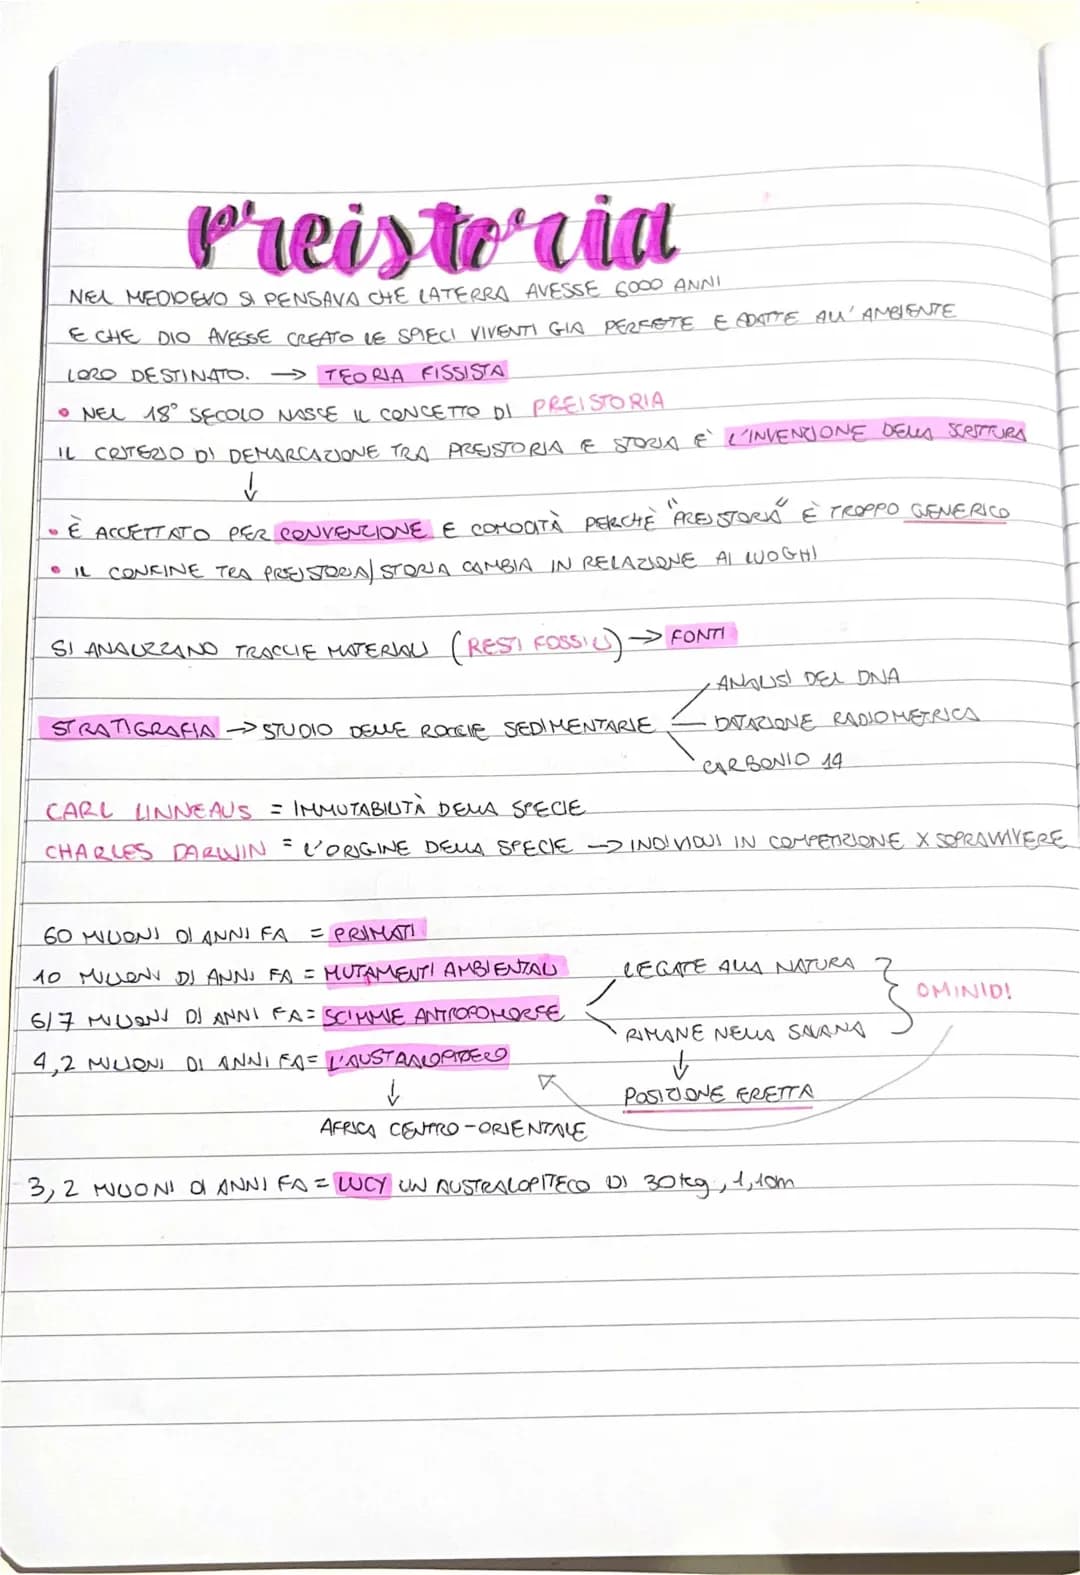 preistoria
NEL MEDIOEVO SI PENSAVA CHE LA TERRA AVESSE 6000 ANNI
E CHE DIO AVESSE CREATO LE SPIECI VIVENTI GIA PERFETE E ADATTE ALL' AMBIENTE
LORO DESTINATO. → TEORIA FISSISTA
• NEL 18° SECOLO NASCE IL CONCETTO DI PREISTORIA
IL CRITERIO DI DEMARCAZIONE TRA PREISTORIA E STORIA E' L'INVENZIONE DELLA SCRITTURA
↓
• È ACCETTATO PER CONVENZIONE E COMODITÀ PERCHÈ "PREISTORIA" È TROPPO GENERICO
• IL CONFINE TRA PREISTORIA/STORIA CAMBIA IN RELAZIONE AI LUOGHI
SI ANALIZZANO TRACCIE MATERIALI (RESTI FOSSILI) → FONTI
ANALISI DEL DNA
STRATIGRAFIA → STUDIO DELLE ROCCIE SEDIMENTARIE DATAZIONE RADIOMETRICA
CARBONIO 14
CARL LINNEAUS = IMMUTABILITÀ DELLA SPECIE
CHARLES DARWIN = L'ORIGINE DELLA SPECIE → INDIVIDUI IN COMPETIZIONE X SOPRAVVIVERE
60 MILIONI DI ANNI FA = PRIMATI
10 MILIONI DI ANNI FA = MUTAMENTI AMBIENTALI LEGATE ALLA NATURA
OMINIDI
6/7 MILIONI DI ANNI FA = SCIMMIE ANTROPOMORFE RIMANE NELLA SAVANA
4,2 MILIONI DI ANNI FA = L'AUSTRALOPITECO ↓
↓ POSIZIONE ERETTA
AFRICA CENTRO-ORIENTALE
3,2 MILIONI DI ANNI FA = LUCY UN AUSTRALOPITECO DI 30kg, 1,10m